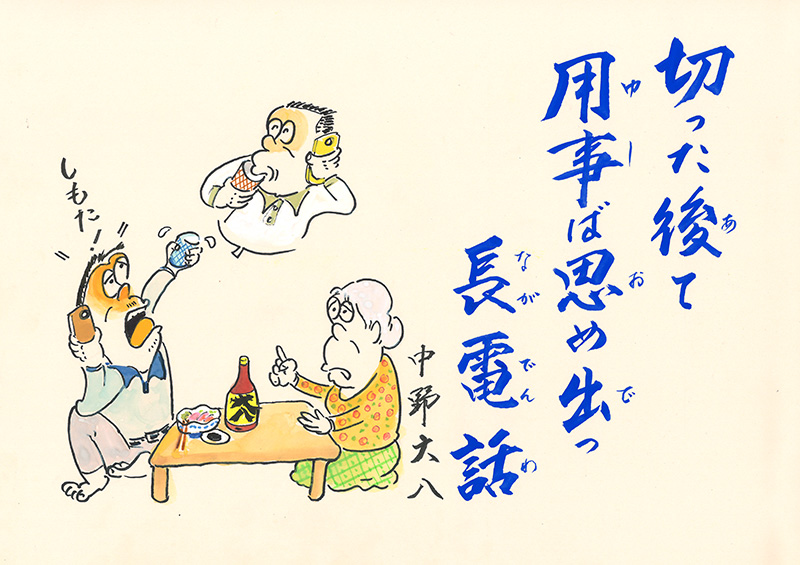 切った後て
あ
用事ば思め出っ
ゆし
お
で
長電話
ながでんわ
中野大八
しもた!
大八